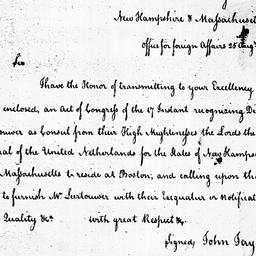 New Hampshire & Massachuset
Office for foreign Affairs 25 Aug
Sir
I have the Honor of transmitting to your Excellency
enclosed, an Act of Congress of the 17 Instant recognizing
as Consul from their High Mightinesses the Lords the
of the United Netherlands for the States of New Hamps
Massachusetts to reside at Boston; and calling upon th
to furnish Mr with their Exequatur or Notificat
Quality &c. with great Respect &c.
Signed John Jay